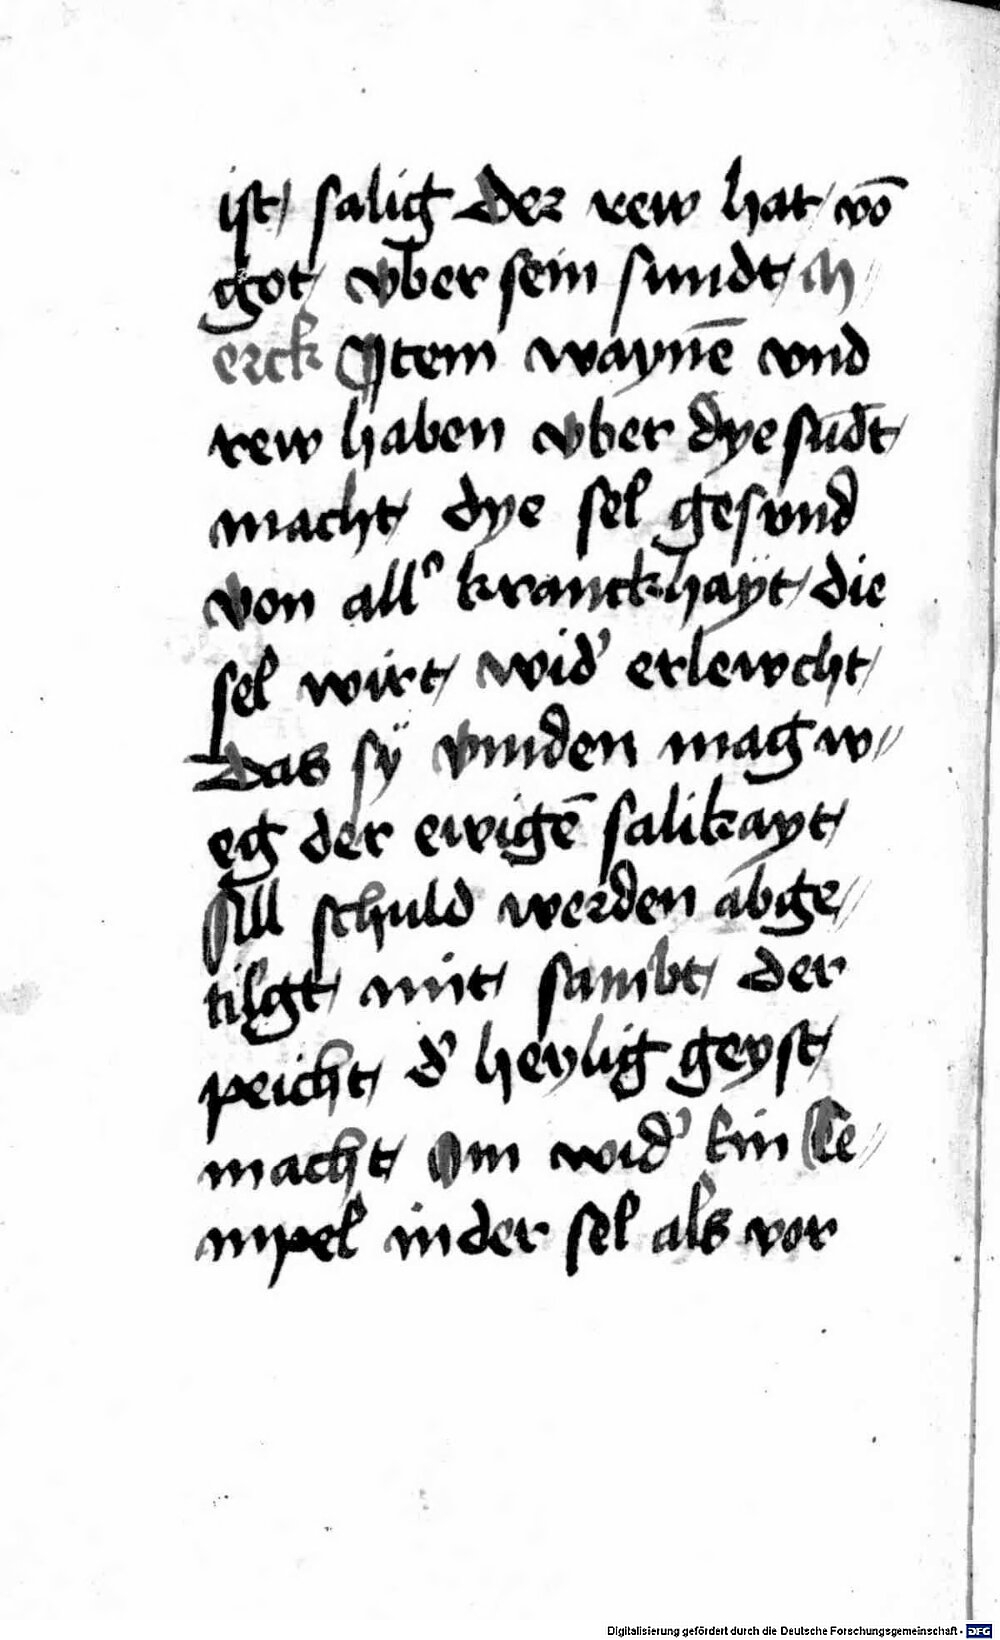 ist / salig der rew hat / vō
got / vber sein sundt / M //
erck Item waynē vnd
rew haben vber dye sūdt /
macht / dye sel gesvnd
von all' kranckhayt / die
sel wirt / wid' erlewcht /
Das sÿ vinden mag w //
eg der ewigē salikayt /
All schuld werden abge //
tilgt / mit / sambt / der
peicht / d' heylig geyst /
macht / Im wid' ein Te //
mpel in der sel als vor
Digitalisierung gefördert durch die Deutsche Forschungsgemeinschaft - DFG